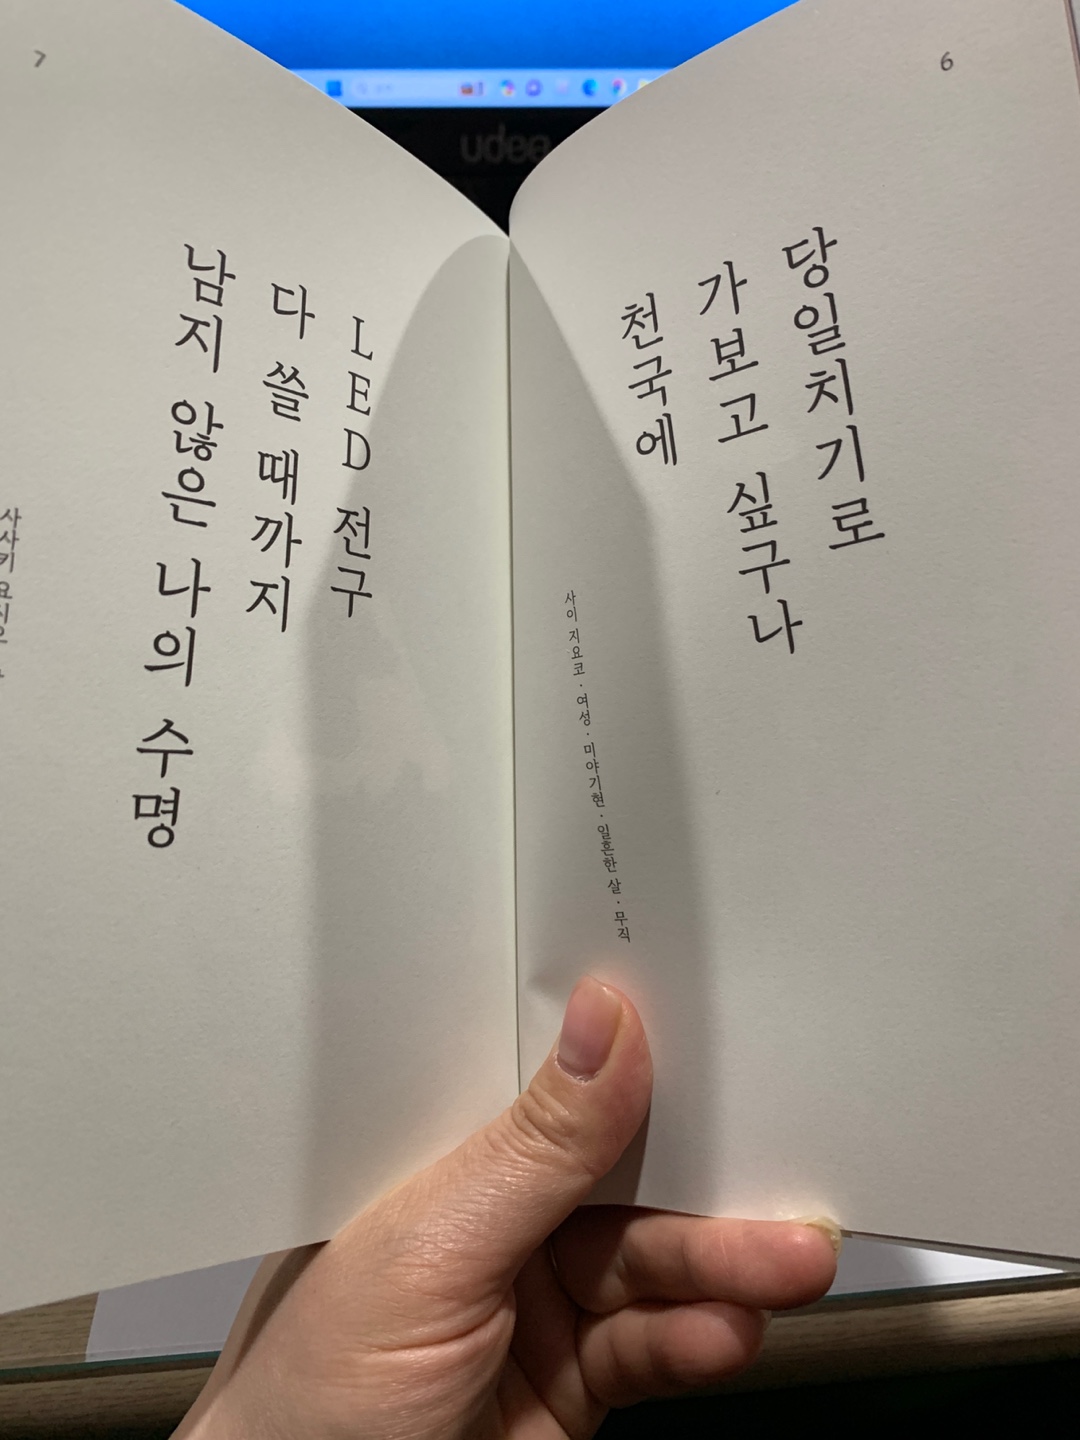 6
당일치기로
가보고 싶구나
천국에
사이 지요코 · 여성 · 미야기현 · 일흔한 살 · 무직
7
LED 전구
다 쓸 때까지
남지 않은 나의 수명
사사키